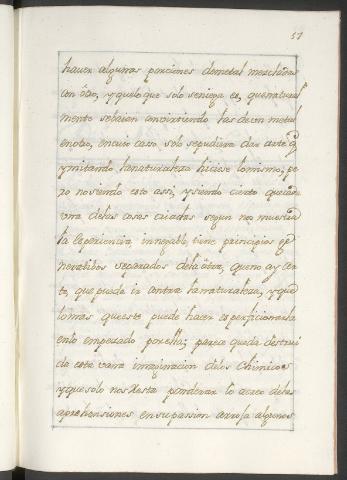 57
haver algunas porciones demetal mezcladas
con ôtro, y queloque solo seniega es, quenatural
mente sebaien convirtiendo las deun metal
enotro, encuio caso solo sepudiera dar arte q̃
ymitando lanaturaleza hiciese lomismo; pe
ro nosiendo esto assi, y siendo cierto quecada
una delas cosas criadas segun nos muestra
la Experiencia innegable tiene principios ge
nerativos separados dela ôtra, queno ay Ar
te, que pueda ir contra lanaturaleza, y que
lomas queeste puede hacer es perficionarla
enlo empesado porella; parece queda destrui
da esta vana imaginacion delos Chimicos
y que solo nos Resta ponderar lo acreo delas
aprehensiones ensupasion arroja algunos